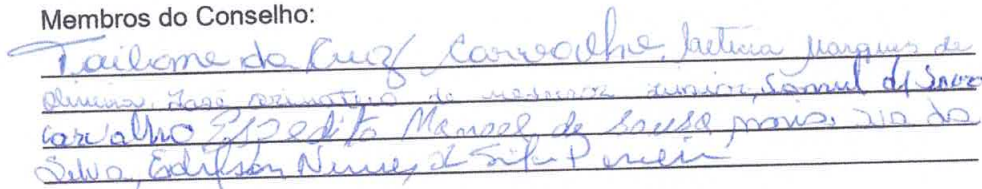 Membros do Conselho:
Tailane da Cruz Carvalho, Leticia Marques de
Oliveira, José de Junior, Samuel de Souza
Carvalho Espedito Manoel de Sousa, Maria da
Silva, Edilson Nunes da Silva Pereira